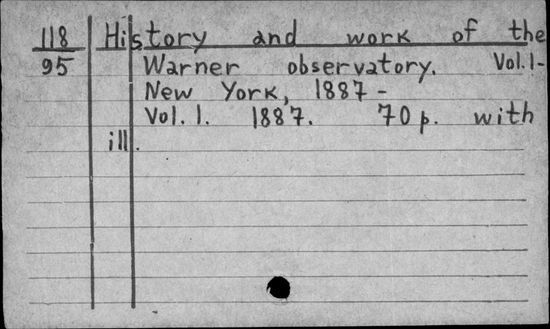 118 History and work of the
95 Warner observatory. Vol. 1-
New York, 1887 -
Vol. 1. 1887. 70 p. with
ill.